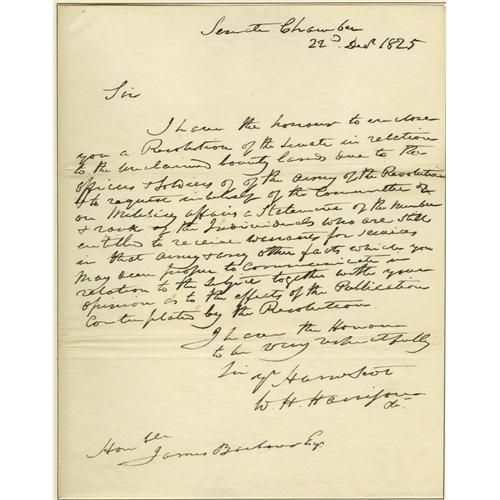 Senate Chamber
22d Decr 1825
Sir
I have the honour to enclose
you a Resolution of the Senate in relation
to the unclaimed bounty lands due to the
officers & soldiers of of the Army of the Revolution
& to request in behalf of the Committee
on Military affairs a Statement of the number
& rank of the Individuals who are still
entitled to receive warrants for services
in that army & any other facts which you
may deem proper to communicate in
relation to the subject together with your
opinion as to the effects of the Publication
contemplated by the Resolution
I have the Honour
to be very respectfully
Sir yr Humle Servt
W. H. Harrison
Honble
James Barbour Esqr